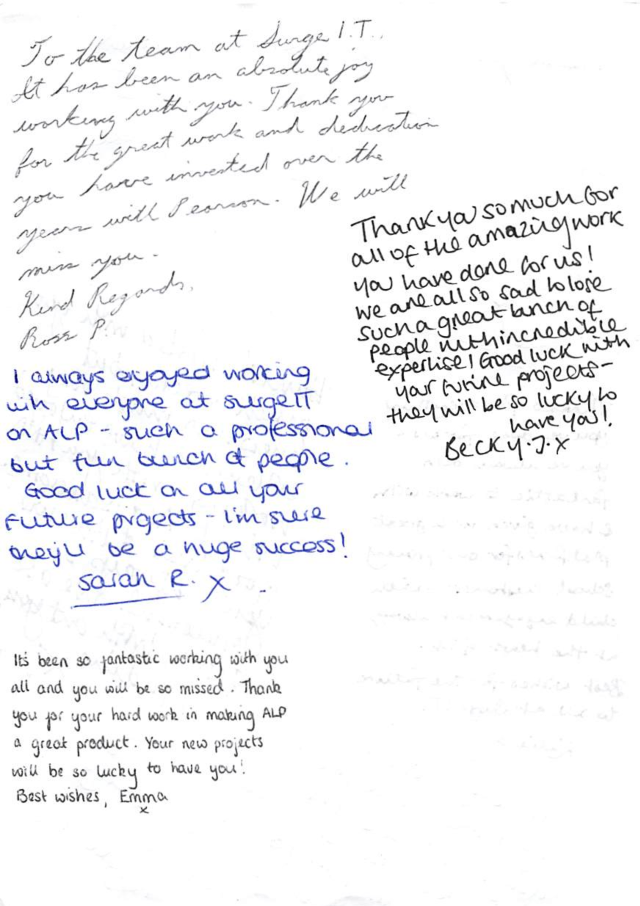 To the team at Surge I.T.,
It has been an absolute joy
working with you. Thank you
for the great work and dedication
you have invested over the
years with Pearson. We will
miss you.
Kind Regards,
Ross P.
Thank you so much for
all of the amazing work
you have done for us!
we are all so sad to lose
such a great bunch of
people with incredible
expertise! Good luck with
your future projects -
they will be so lucky to
have you!
Becky.J.x
I always enjoyed working
with everyone at surgeIT
on ALP - such a professional
but fun bunch of people.
Good luck on all your
future projects - I'm sure
they'll be a huge success!
Sarah R. x
It's been so fantastic working with you
all and you will be so missed. Thank
you for your hard work in making ALP
a great product. Your new projects
will be so lucky to have you!
Best wishes, Emma
x